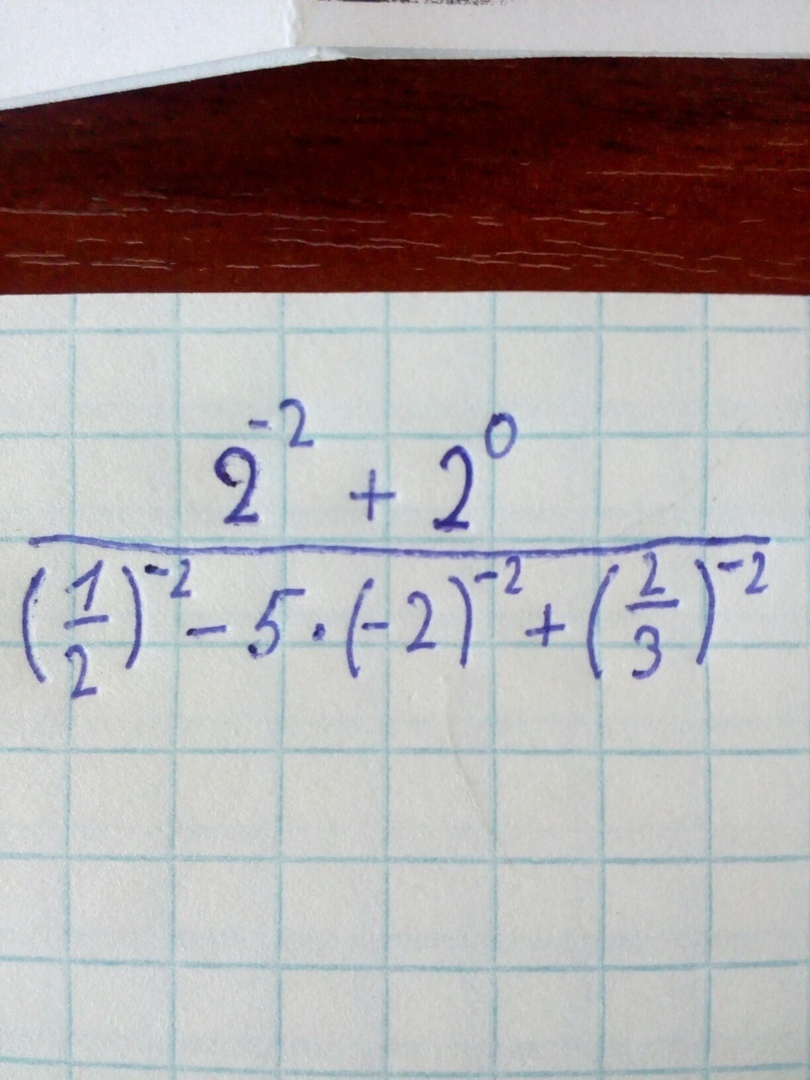 2⁻² + 2⁰
(1/2)⁻² - 5 · (-2)⁻² + (2/3)⁻²